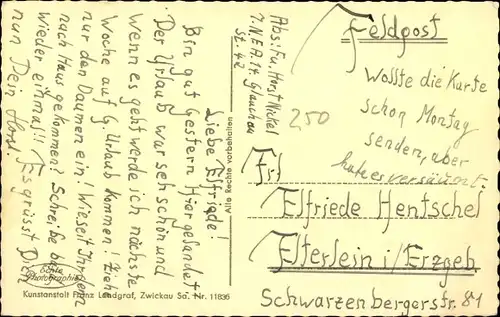 Liebe Elfriede!
Bin gut Gestern Hier gelandet
Der Urlaub war seh schön und
Wenn es geht werde ich nächste
Woche auf G. Urlaub kommen! Zieh
nur den Daumen ein! Wie seit Ihr denn
nach Haus gekommen? Schreibe bitte
wieder einmal!! Es grüsst Dich
nun Dein Horst
Echte
Photographie
Kunstanstalt Franz Landgraf, Zwickau Sa. Nr. 11836
Alle Rechte vorbehalten
Abs: Fu. Horst Nickel
7. N.E.A. 14. Glauchau
St. 42
Feldpost
Wollte die Karte
schon Montag
senden, aber
habe es versäumt.
250
Frl
Elfriede Hentschel
Elterlein i/Erzgeb
Schwarzenbergerstr. 81